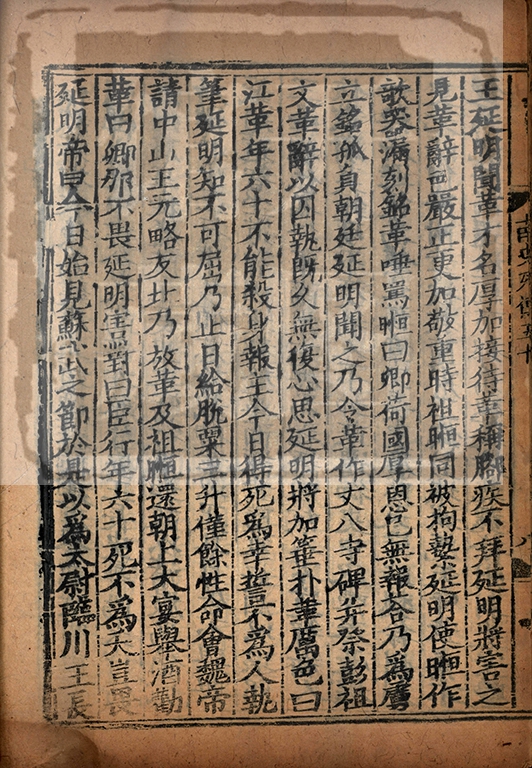 王延明聞革才名厚加接待革稱腳疾不拜延明將害之
見革辭色嚴正更加敬重時祖暅同被拘縶延明使暅作
欹器漏刻銘革唾罵暅曰卿荷國厚恩已無報答乃為虜
立銘孤負朝廷延明聞之乃令革作丈八寺碑并祭彭祖
文革辭以囚執既久無復心思延明將加箠朴革厲色曰
江革年六十不能殺身報主今日得死為幸誓不為人執
筆延明知不可屈乃止日給脫粟三升僅餘性命會魏帝
請中山王元略反北乃放革及祖暅還朝上大宴舉酒勸
革曰卿那不畏延明害對曰臣行年六十死不為夭豈畏
延明帝曰今日始見蘇武之節於是以為太尉臨川王長